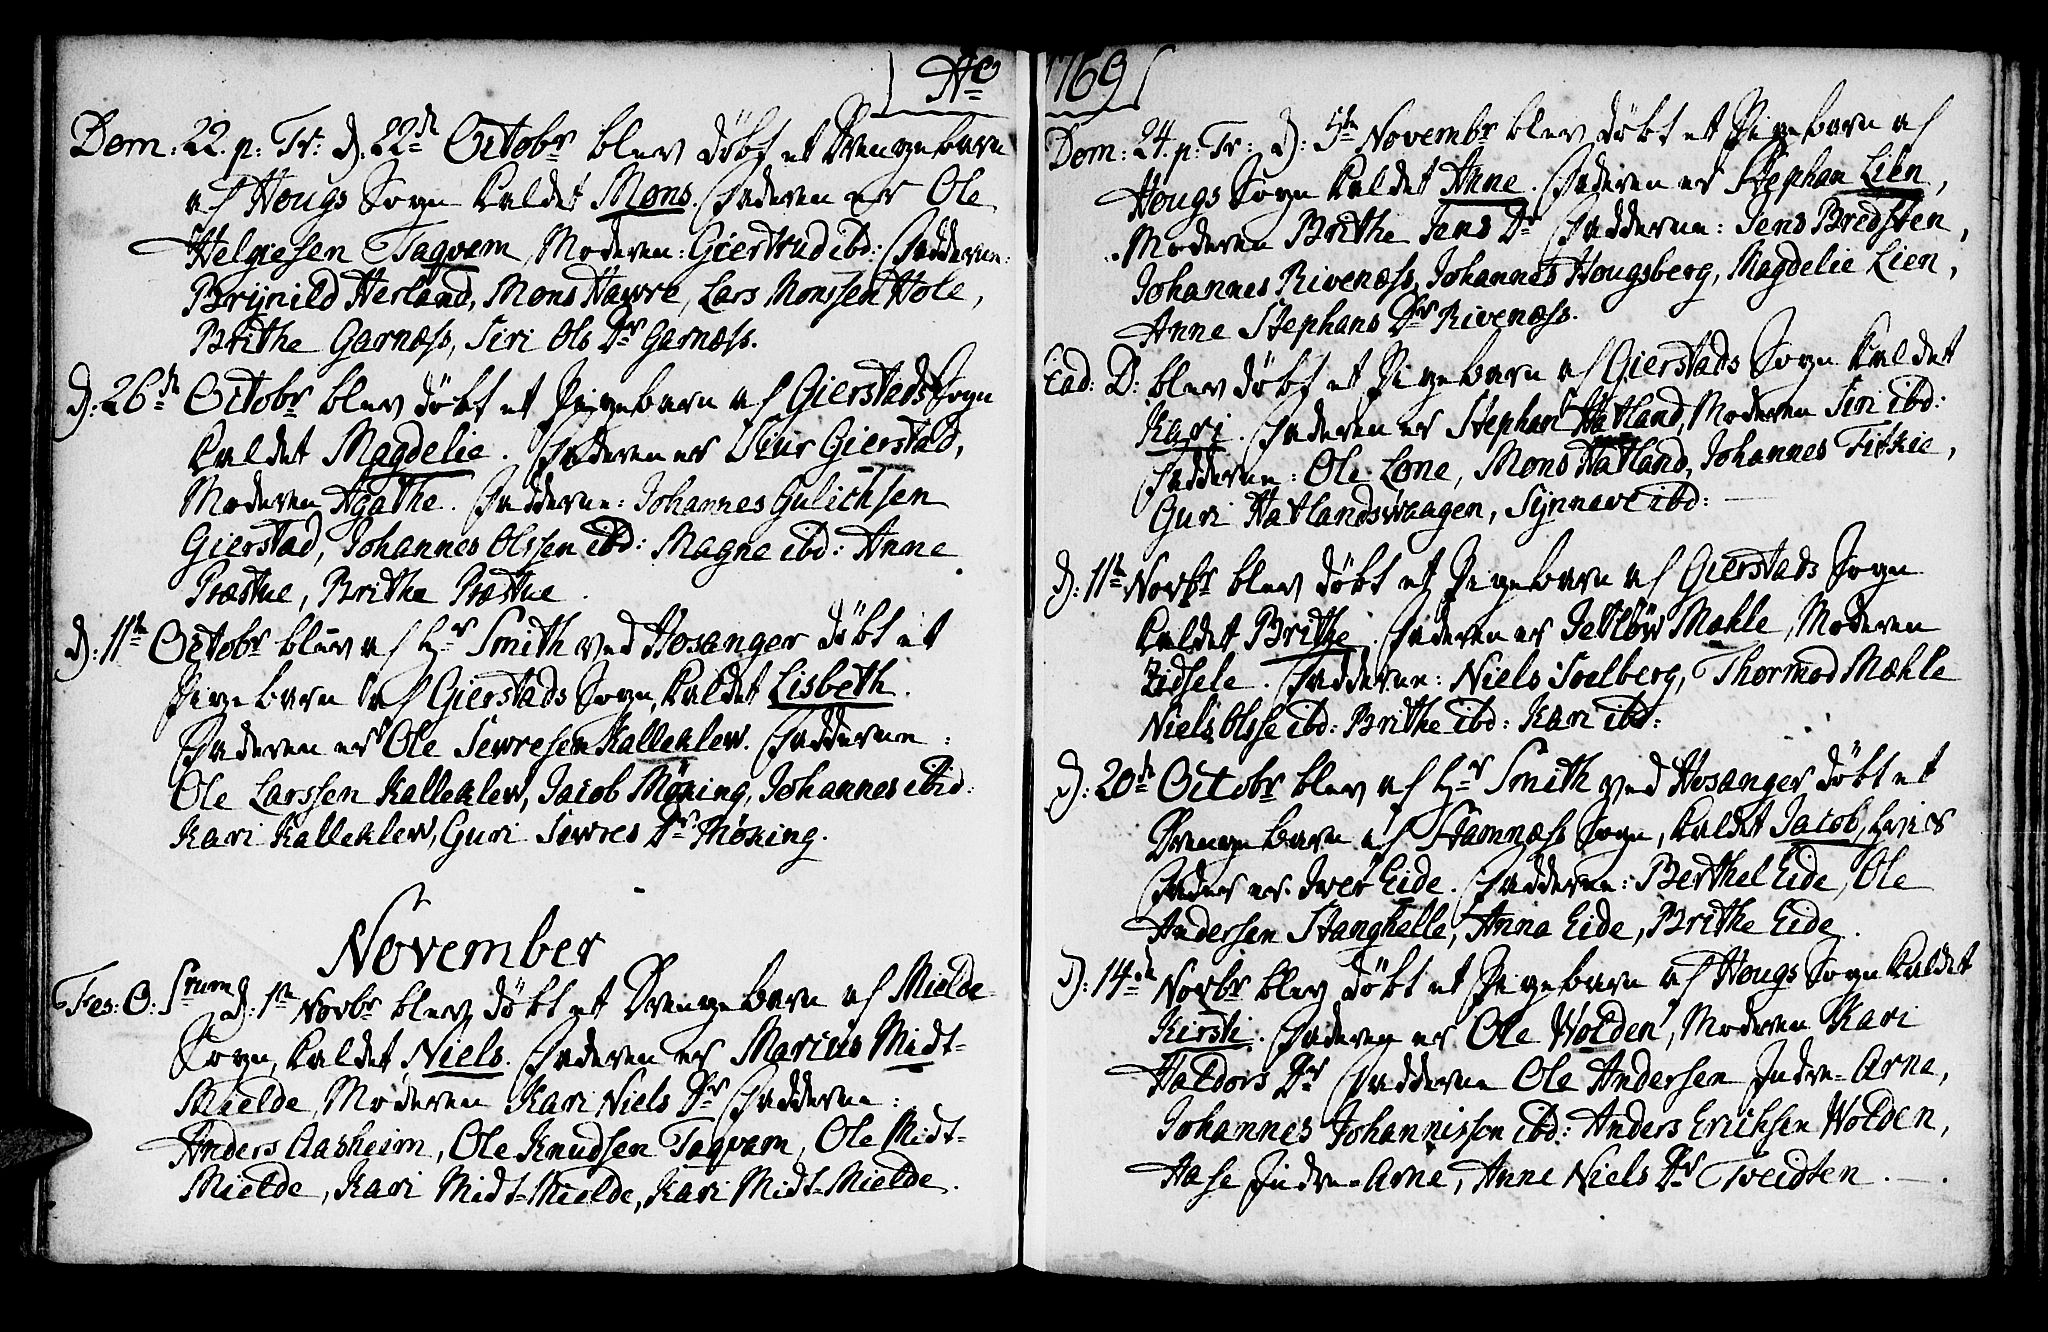 Ao
Dom: 22. p: Tr: d. 22de Octobr blev døbt et Drengebarn
af Hougs Sogn kaldet Mons. Faderen er Ole
Helgesen Taqvam, Moderen: Giertrud ibd: Fadderne:
Brynild Herland, Mons Hawre, Lars Monssen Hole,
Brithe Garnæss, Siri Ols Dr Garnæss.
d: 26de Octobr blev døbt et Pigebarn af Gierstads Sogn
kaldet Magdelie. Faderen er Siur Gierstad,
Moderen Agathe. Fadderne: Johannes Gulichsen
Gierstad, Johannes Olssen ibd: Magne ibd: Anne
Præstue, Brithe Præstue.
d: 11te Octobr blev af Hr Smith ved Hosanger døbt et
Pigebarn af Gierstads Sogn, kaldet Lisbeth.
Faderen er Ole Sewresen Kalleklew. Fadderne:
Ole Larssen Kalleklew, Jacob Møking, Johannes ibid:
Kari Kalleklew, Guri Sewres Dr Møking.
November
Fes: O: Strum d: 1te Novbr blev døbt et Drengebarn af Mielde
Sogn, kaldet Niels. Faderen er Marius Midt-
Mielde, Moderen Kari Niels Dr Fadderne:
Anders Aasheim, Ole Knudsen Taqvam, Ole Midt-
Mielde, Kari Midt-Mielde, Kari Midt-Mielde.
1769
Dom: 24. p: Tr: d: 5te Novembr blev døbt et Pigebarn af
Hougs Sogn kaldet Anne. Faderen er Stephan Lien,
Moderen Brithe Jens Dr Fadderne: Jens Bredsten,
Johannes Rivenæss, Johannes Hougsberg, Magdelie Lien,
Anne Stephans Dr Rivenæss.
Ead: D: blev døbt et Pigebarn af Gierstads Sogn kaldet
Kari. Faderen er Stephan Hatland, Moderen Siri ibd:
Fadderne: Ole Lone, Mons Hatland, Johannes Titkie,
Guri Hatlandswaagen, Synneve ibd:
d: 11te Novbr blev døbt et Pigebarn af Gierstads Sogn
kaldet Brithe. Faderen er Detløv Mæhle, Moderen
Zidsele. Fadderne: Niels Soelberg, Thormod Mæhle
Niels Olsse ibd: Brithe ibd: Kari ibd:
d: 20de Octobr blev af Hr Smith ved Hosanger døbt et
Drengebarn af Stamnæss Sogn, kaldet Jacob, hvis
Fader er Iver Eide. Fadderne: Berthel Eide, Ole
Andersen Stanghelle, Anna Eide, Brithe Eide.
d: 14de Novbr blev døbt et Pigebarn af Hougs Sogn kaldet
Kirsti. Faderen er Ole Wolden, Moderen Kari
Haldors Dr Fadderne Ole Andersen Indre-Arne,
Johannes Johannissen ibd: Anders Erichsen Wolden,
Aase Indre-Arne, Anne Niels Dr Tveidten.